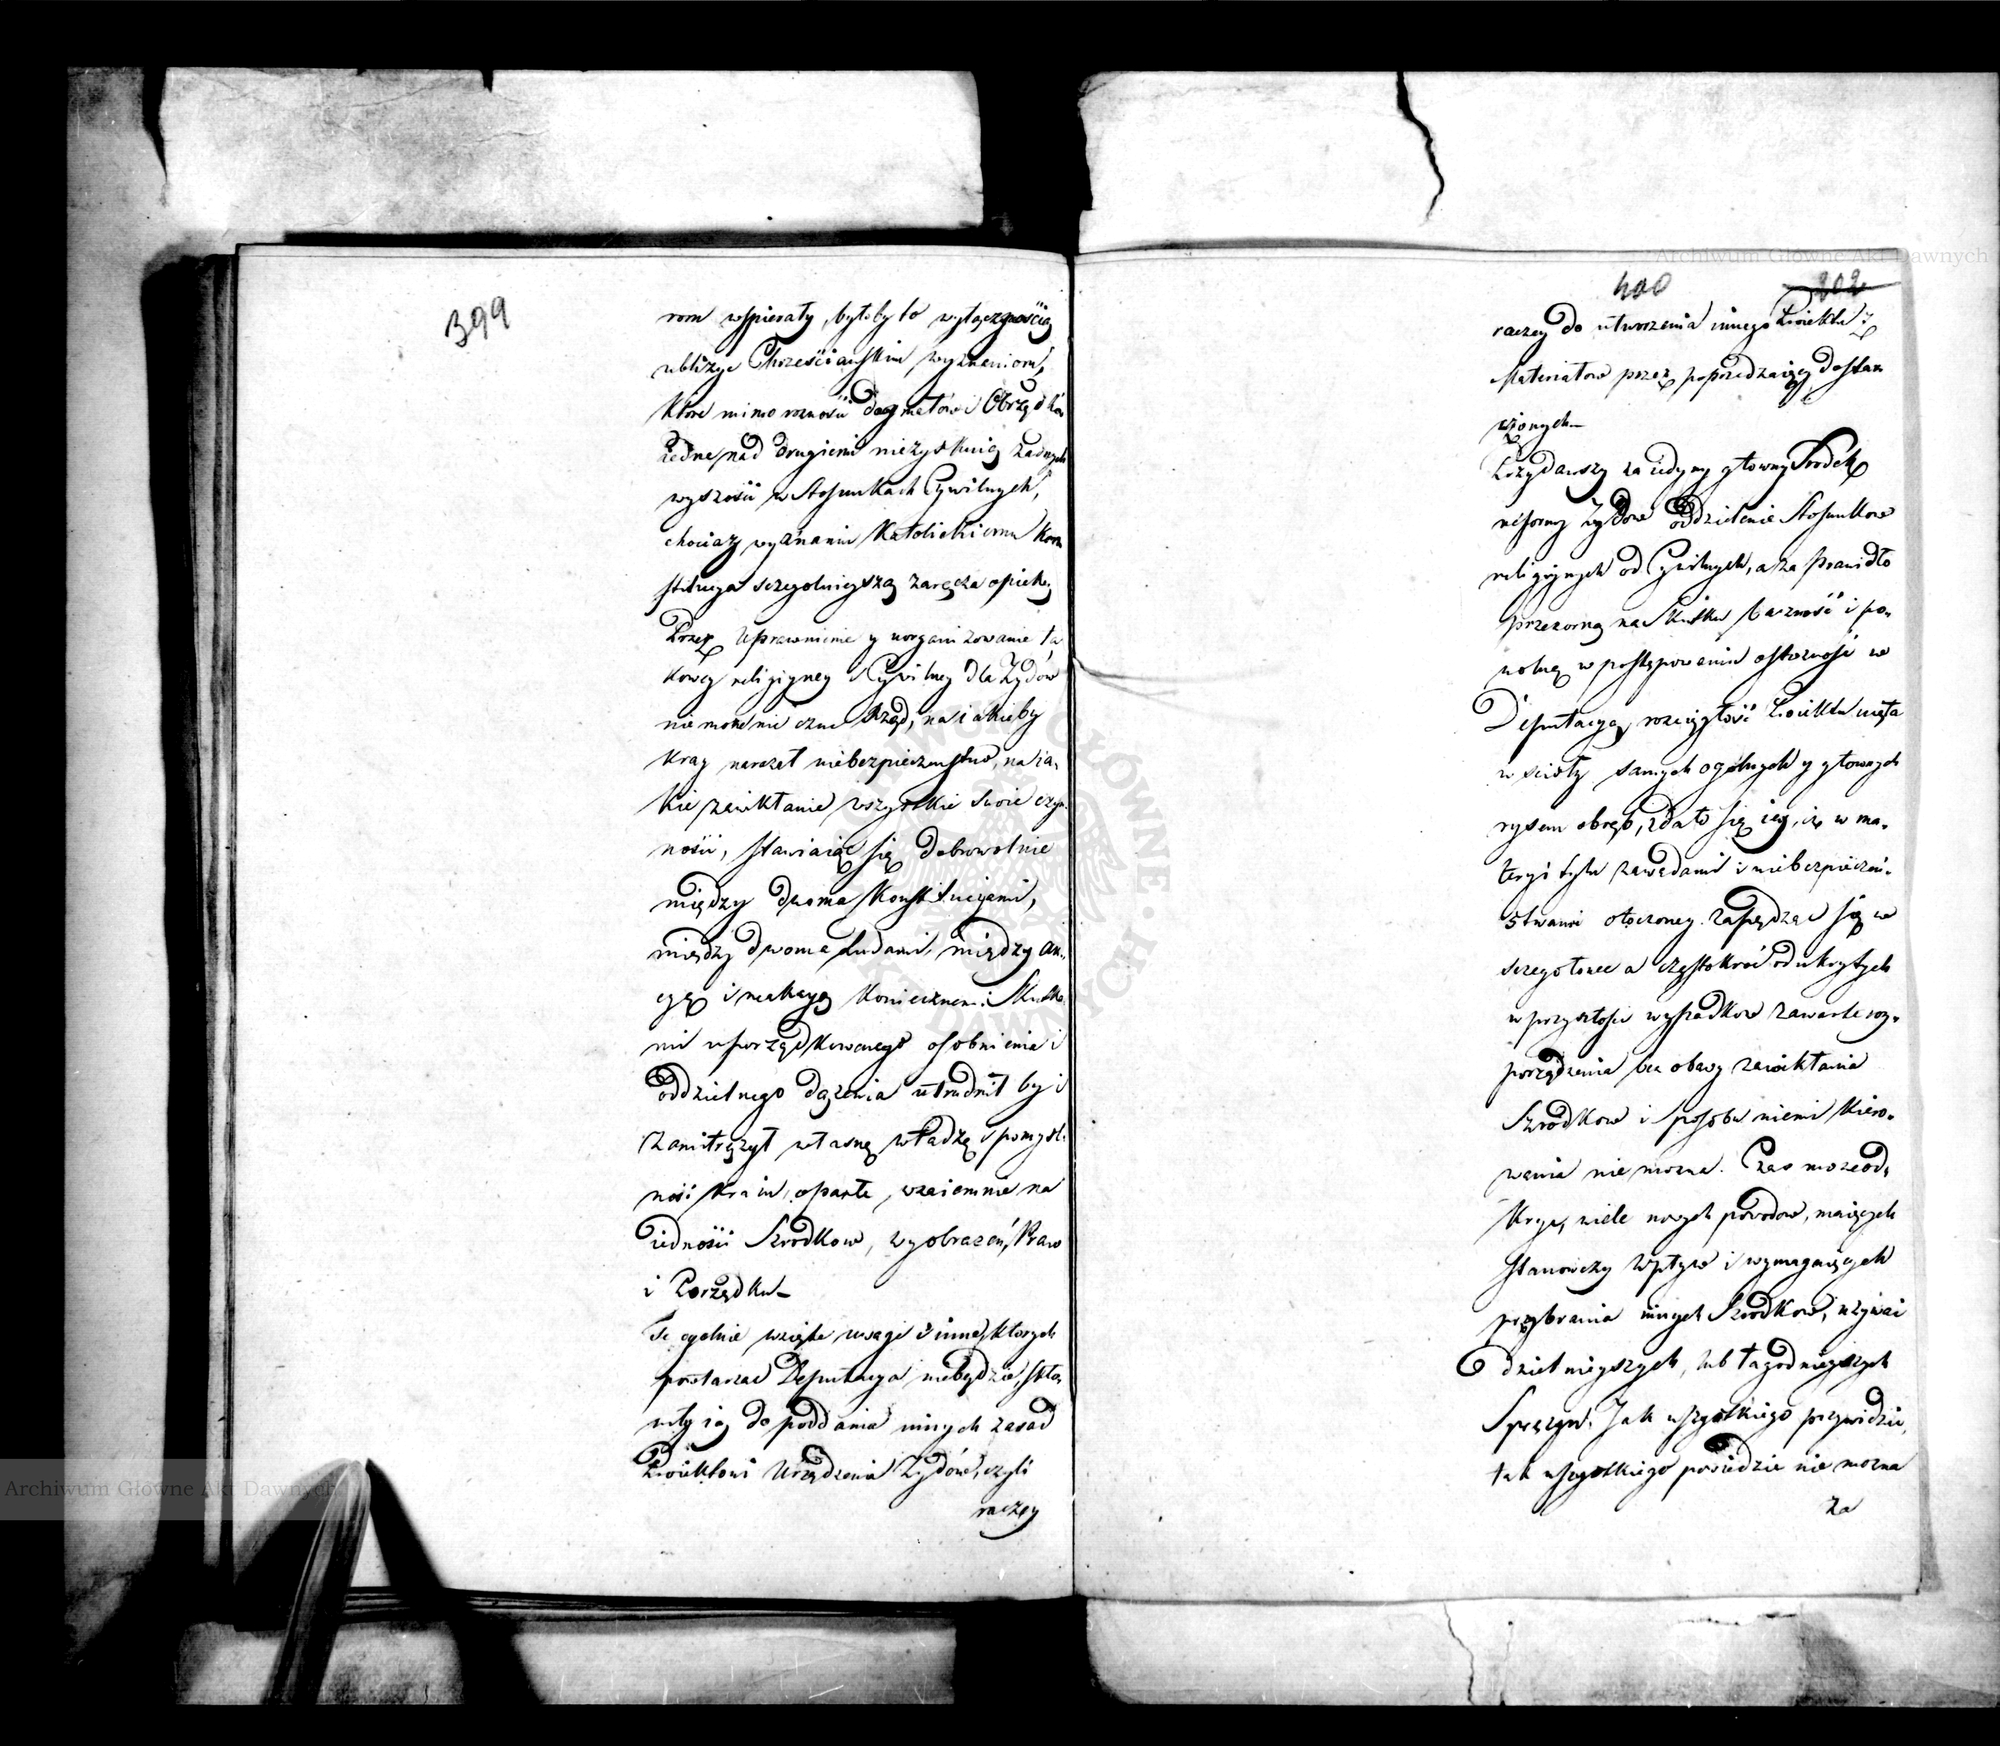 399
rom wspierały, byłoby to wyłącznością
ubliżyć Chrześciańskim wyznaniom,
które mimo rożności dogmatów i Obrządków
iedne nad drugiemi niezyskuią żadnych
wyższości w Stosunkach Cywilnych,
chociaz wyznaniu Katolickiemu Kon
stitucya szczegolnieyszą zaręcza opiekę
Przez Uprawnienie y uorganizowanie ta
kowey religiyney i Cywilney dla Żydów
nie może nie czuć Rząd, na iakieby
Kray naraził niebezpieczeństwo, na ia-
kie zawikłanie wszystkie swoie czyn
ności, stawiaiąc się dobrowolnie
między dwoma Konstitucyami,
między dwoma Ludami, między
cyą i reakcyą koniecznemi Skutka
mi uporządkowanego osobnienia i
oddzielnego dążenia utrudnił by i
zamitrężył własną władzę i pomyśl-
ność kraiu, oparte, wzaiemnie na
iedności Szrodkow, wyobrażeń, Praw
i Porządku_
Te ogolnie wzięte uwagi i inne, ktorych
powtarzać Deputacya niebędzie, skło-
niły ią do poddania innych zasad
Proiektowi Urządzenia Żydów, czyli
raczey
400 202
raczey do utworzenia innego Proiektu z
Materiałow przez poprzedzaiący dostar
czonych_
Przydawszy za iedyny głowny Srodek
reformy Żydow oddzielenie Stosunkow
religiynych od Cywilnych, a za prawidło
przezorną na Skutki baczność i po-
wolną w postępowaniu ostrożność w
Deputacya, rozciągłość Proiektu uięła
w ścisły samych ogolnych y głownych
rysem obręb, zdało się iey, iż w ma-
teryi tylu zawadami i niebezpieczeń-
stwami otoczoney zapędzać się w
szczegołowe a częstokroć od ukrytych
w przyszłości wypadkow zawarte roz-
porządzenia bez obawy zawikłania
Szrodkow i sposobu niemi kiero-
wania nie można. Czas może od-
kryć, wiele nowych powodow, maiących
stanowczy wpływ i wymagaiących
przybrania innych Szrodkow, użycia
dzielnieyszych, lub łagodnieyszych
Sprężyn. Jak wszystkiego przewidzieć,
tak wszystkiego powiedzieć nie można
za
Archiwum Główne Akt Dawnych
Archiwum Główne Akt Dawnych